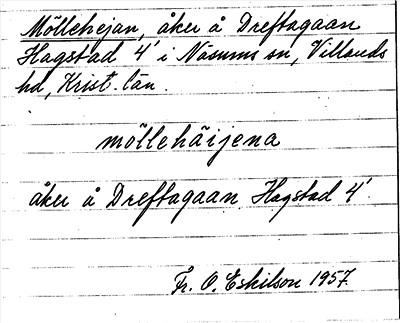 Möllehejan, åker å Dreftagaan
Hagstad 4' i Näsums sn, Villands
hd, Krist. län.
möllehäijena
åker å Dreftagaan Hagstad 4'.
Fr. O. Eskilson 1957.